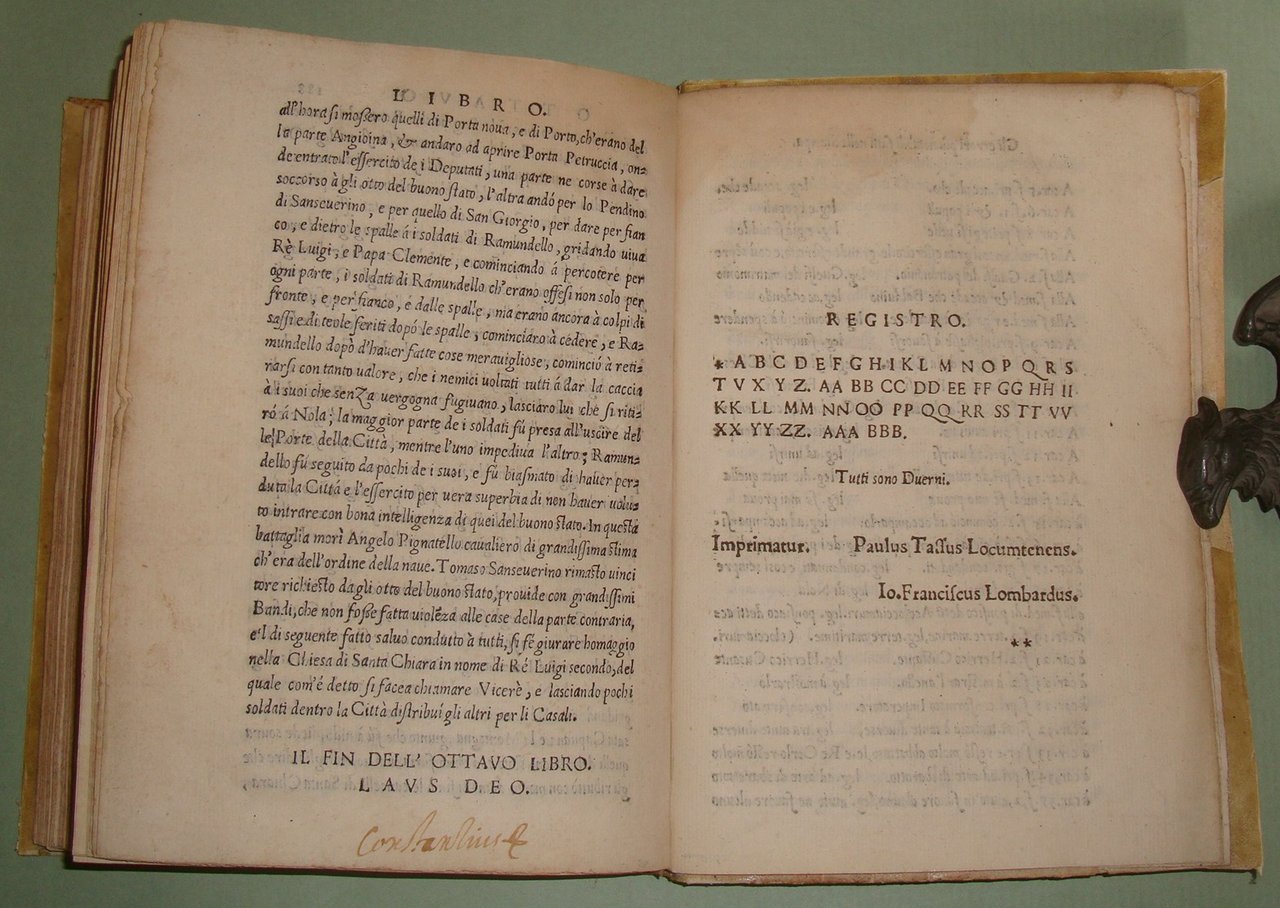 L I B R O.
all'hora si mossero quelli di Porta noua, e di Porto, ch'erano del
la parte Angioina, & andaro ad aprire Porta Petruccia, on=
de entrato l'essercito de i Deputati, una parte ne corse à dare
soccorso à gli otto del buono stato, l'altra andó per lo Pendino
di Sanseuerino, e per quello di San Giorgio, per dare per fian
co, e dietro le spalle á i soldati di Ramundello, gridando uiua
Rè Luigi, e Papa Clemente, e cominciando á percotere per
ogni parte, i soldati di Ramundello ch'erano offesi non solo per
fronte, e per fianco, e dalle spalle, ma erano ancora à colpi di
sassi e di teole feriti dopó le spalle, cominciaro à cedere, e Ra=
mundello dopò d'hauer fatte cose merauigliose, cominció à reti=
rarsi con tanto ualore, che i nemici uoltati tutti á dar la caccia
à i suoi che senza uergogna fugiuano, lasciaro lui che si riti=
ró á Nola; la maggior parte de i soldati fú presa all'uscire del
le Porte della Città, mentre l'uno impediua l'altro; Ramun=
dello fú seguito da pochi de i suoi, e fú biasmato di hauer per=
duto la Cittá e l'essercito per uera superbia di non hauer uolu=
to intrare con bona intelligenza di quei del buono stato. In questa
battaglia morì Angelo Pignatello caualiero di grandissima stima
ch'era dell'ordine della naue. Tomaso Sanseuerino rimasto uinci
tore richiesto dagli otto del buono stato, prouide con grandissimi
Bandi, che non fosse fatta uiolēza alle case della parte contraria,
e'l di seguente fatto saluo condutto à tutti, si fé giurare homaggio
nella Chiesa di Santa Chiara in nome di Ré Luigi secondo, del
quale com'é detto si facea chiamare Vicerè, e lasciando pochi
soldati dentro la Città distribuí gli altri per li Casali.
IL FIN DELL' OTTAVO LIBRO.
L A V S D E O.
Constantius
REGISTRO.
* A B C D E F G H I K L M N O P Q R S
T V X Y Z. AA BB CC DD EE FF GG HH II
KK LL MM NN OO PP QQ RR SS TT VV
XX YY ZZ. AAA BBB.
Tutti sono Duerni.
Imprimatur. Paulus Tassus Locumtenens.
Io. Franciscus Lombardus.
**